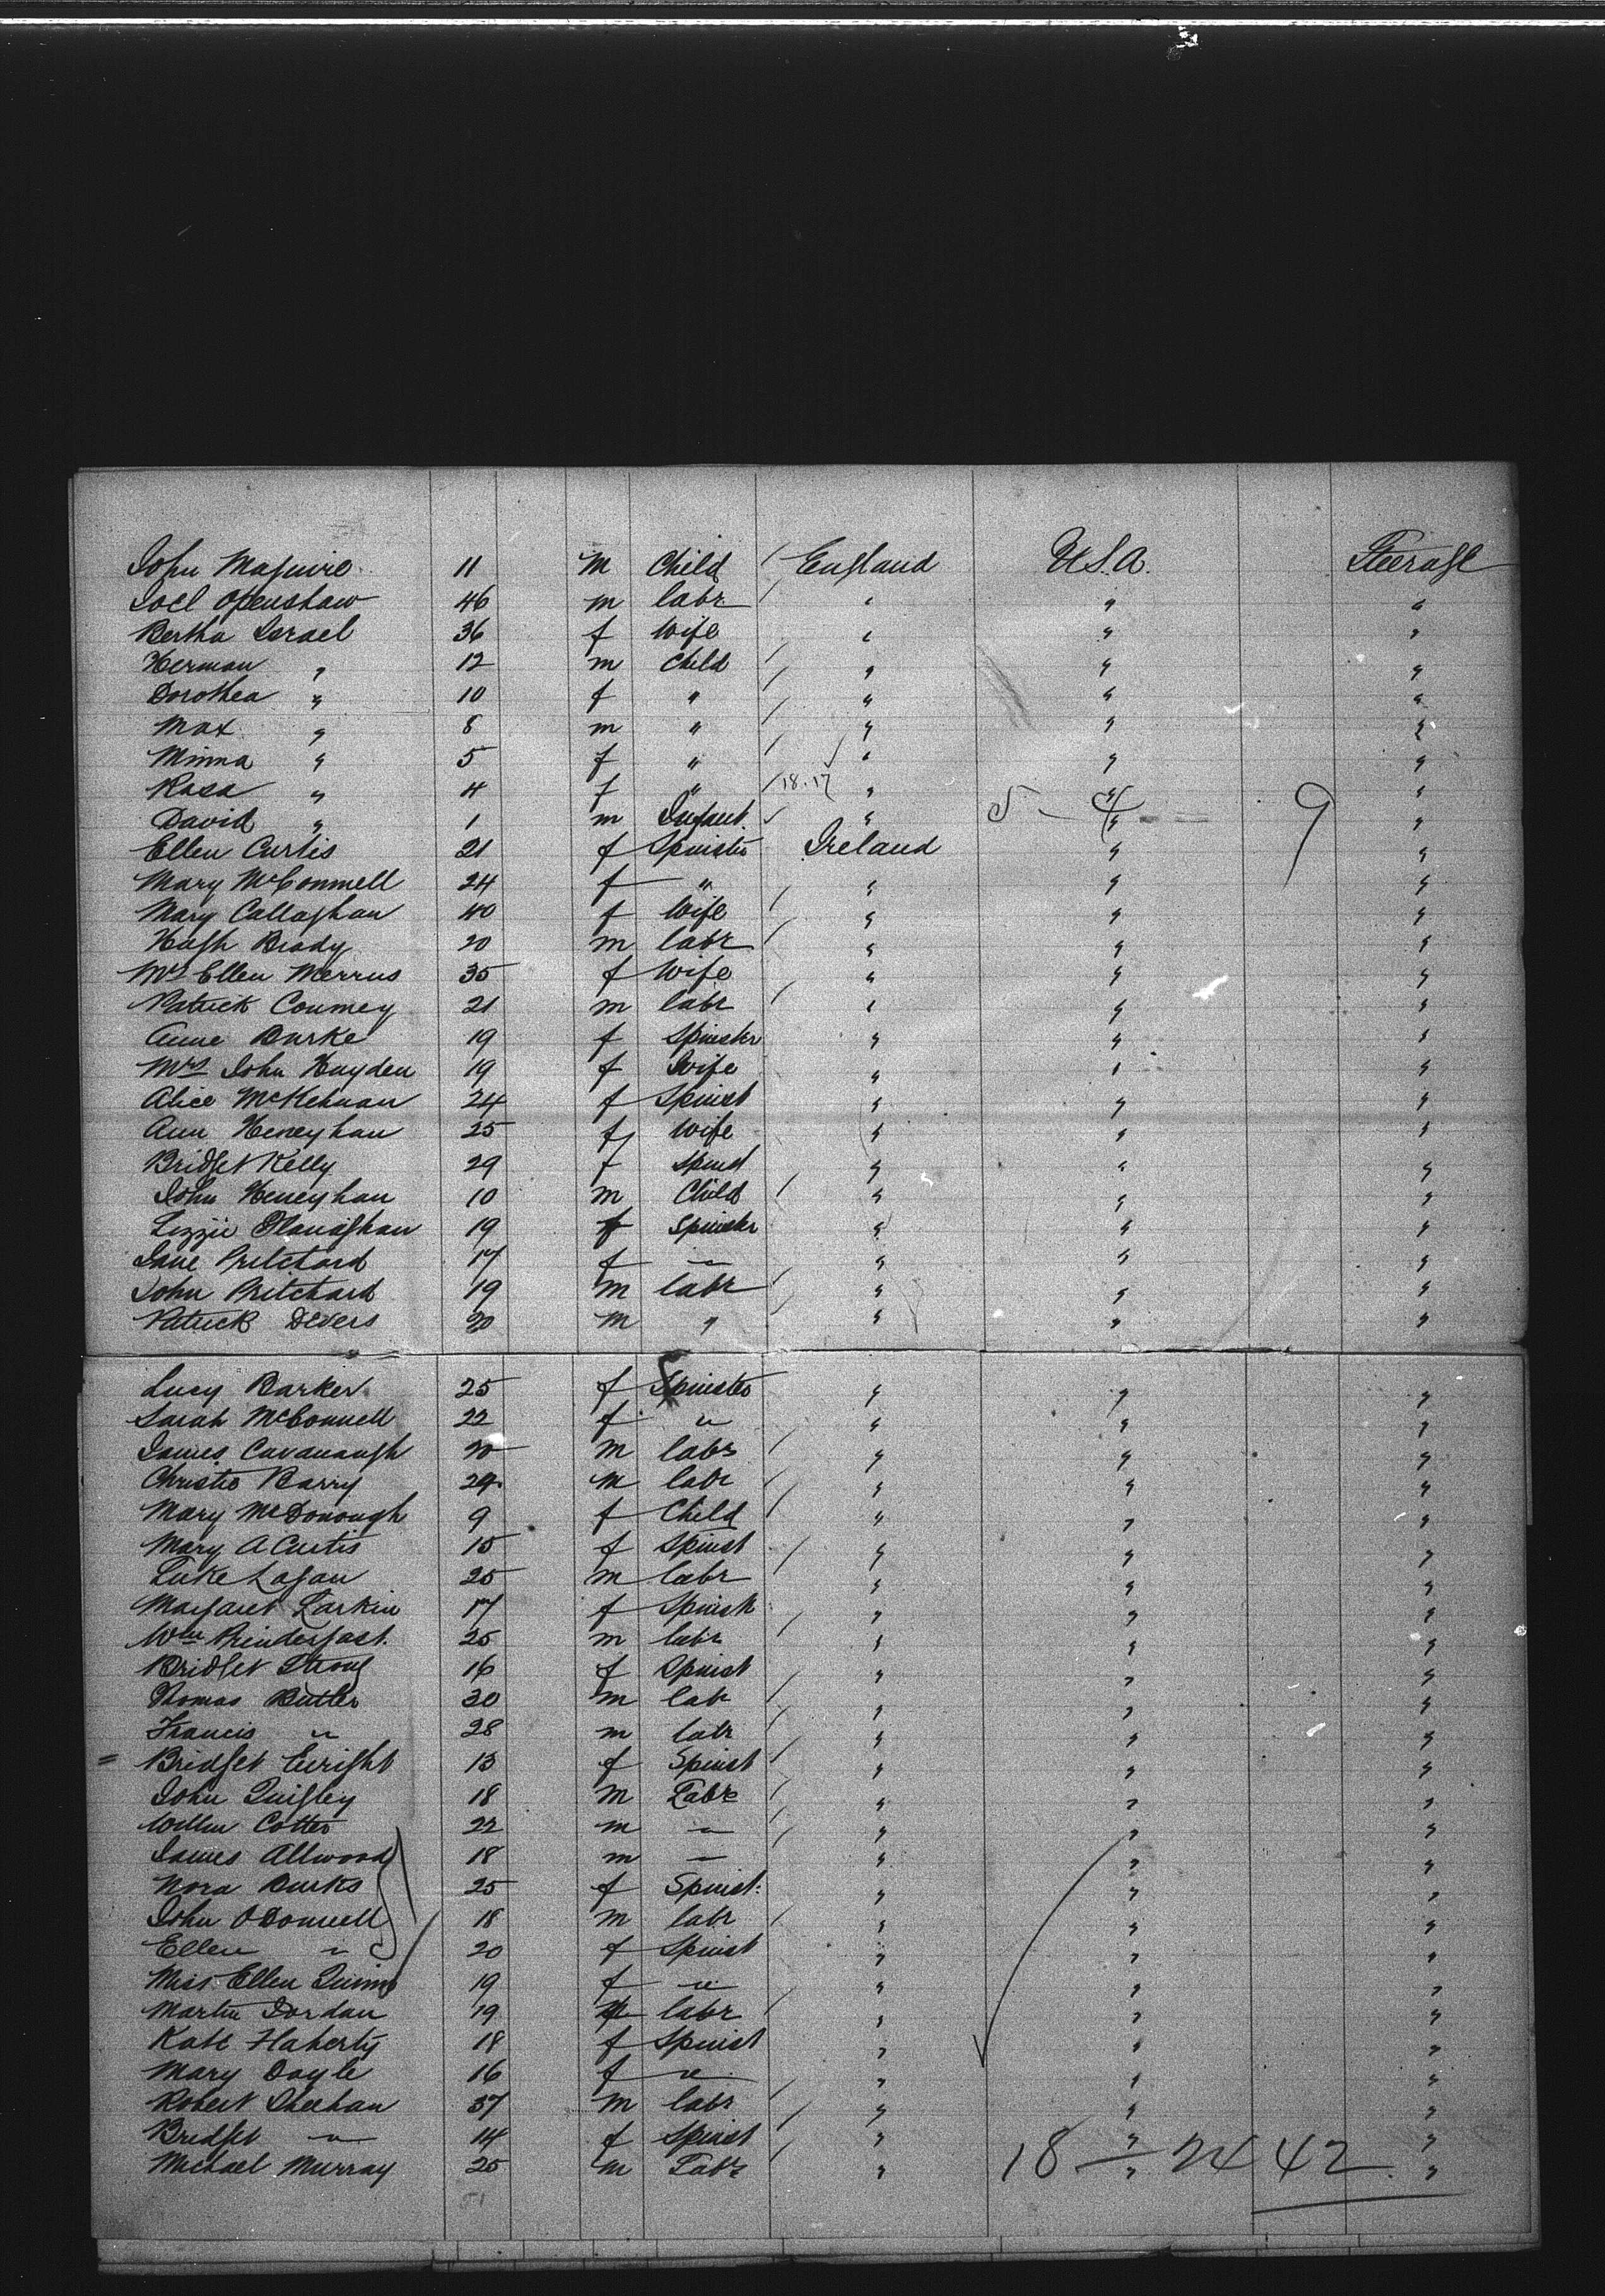 John Maguire 11 M Child England U.S.A. Steerage
Joel Openshaw 46 m labr " " "
Bertha Israel 36 f Wife " " "
Herman " 12 m Child " " "
Dorothea " 10 f " " " "
Max " 8 m " " " "
Minna " 5 f " " " "
Rosa " 4 f " 18.17 " " "
David " 1 m Infant " 5 - 4 " 9 "
Ellen Curtis 21 f Spinster Ireland " "
Mary McConnell 24 f " " " "
Mary Callaghan 40 f Wife " " "
Hugh Brady 20 m labr " " "
Mrs Ellen Merrus 35 f Wife " " "
Patrick Coumey 21 m labr " " "
Anne Burke 19 f Spinster " " "
Mrs John Hayden 19 f Wife " " "
Alice McKehnan 24 f Spinst " " "
Ann Heneyhan 25 f Wife " " "
Bridget Kelly 29 f Spinst " " "
John Heneyhan 10 m Child " " "
Lizzie Flanaghan 19 f Spinster " " "
Jane Pritchard 17 f " " " "
John Pritchard 19 m labr " " "
Patrick Devers 20 m " " " "
Lucy Barker 25 f Spinster " " "
Sarah McConnell 22 f " " " "
James Cavanaugh 20 m labr " " "
Christie Barry 24 m labr " " "
Mary McDonough 9 f Child " " "
Mary A Curtis 15 f Spinst " " "
Luke Logan 25 m labr " " "
Margaret Larkin 17 f Spinst " " "
Wm Prindergast 25 m labr " " "
Bridget Strong 16 f Spinst " " "
Thomas Butler 30 m labr " " "
Francis " 28 m labr " " "
= Bridget Enright 13 f Spinst " " "
John Quigley 18 m Labr " " "
Willm Cotter 22 m " " " "
James Allwood 18 m " " " "
Nora Burks 25 f Spinst: " " "
John ODonnell 18 m labr " " "
Ellen " 20 f Spinst " " "
Miss Ellen Quinn 19 f " " " "
Martin Jordan 19 m labr " " "
Kate Flaherty 18 f Spinst " " "
Mary Doyle 16 f " " " "
Robert Sheehan 37 m labr " " "
Bridget " 14 f Spinst " " "
Michael Murray 25 m Labr " 18 - 24 42 " "
51